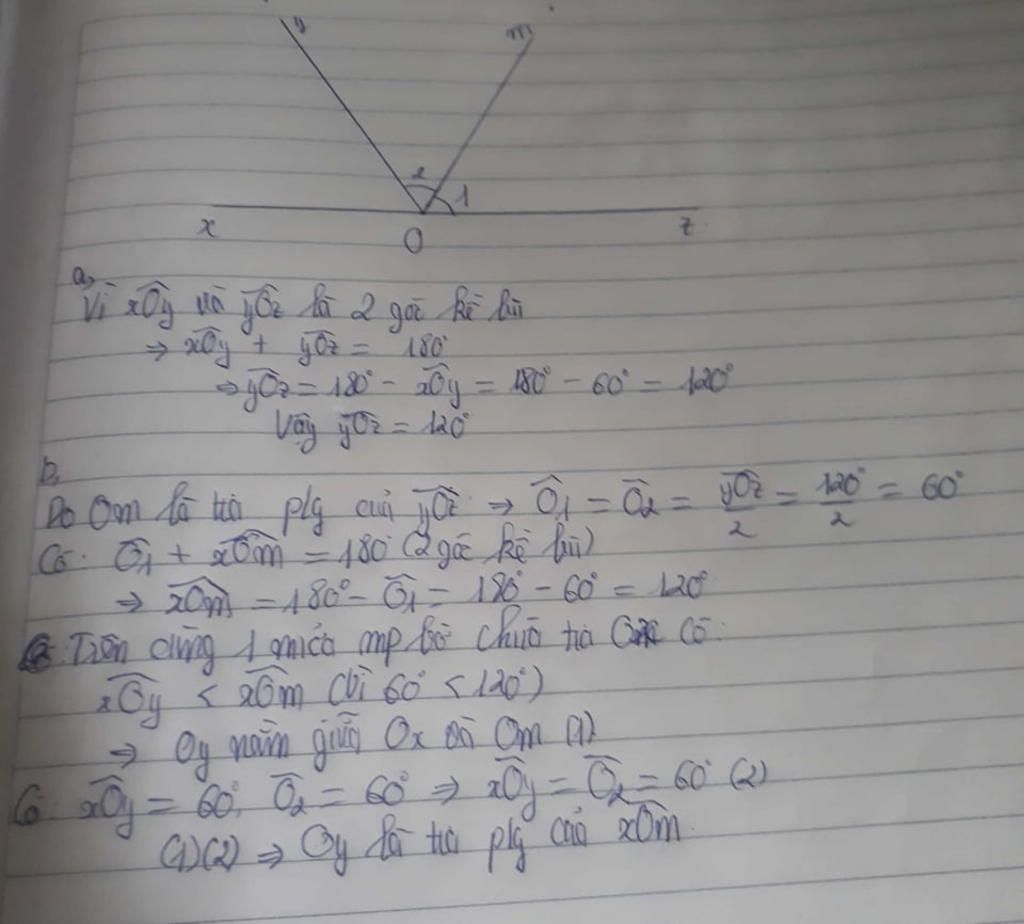 y m
2 1
x O z
a,
Vì xÔy và yÔz là 2 góc kề bù
⇒ xÔy + yÔz = 180°
⇒ yÔz = 180° - xÔy = 180° - 60° = 120°
Vậy yÔz = 120°
b,
Do Om là tia p/g của yÔz ⇒ Ô1 = Ô2 = yÔz/2 = 120°/2 = 60°
Có: Ô1 + xÔm = 180° (2 góc kề bù)
⇒ xÔm = 180° - Ô1 = 180° - 60° = 120°
Trên cùng 1 nửa mp bờ chứa tia Ox có:
xÔy < xÔm (vì 60° < 120°)
⇒ Oy nằm giữa Ox và Om (1)
Có: xÔy = 60°, Ô2 = 60° ⇒ xÔy = Ô2 = 60° (2)
(1)(2) ⇒ Oy là tia p/g của xÔm.